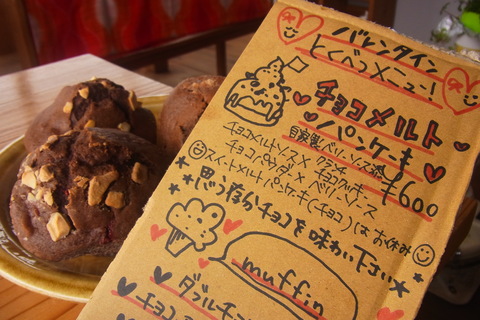 バレンタイン
とくべつメニュー!
チョコメルト
パンケーキ
自家製ベリーソース添
¥600
チョコメルトソース × クランチ
チョコパウダー × ベリーソース
スイートメルトパンケーキ(チョコ)はお休み
思う存分チョコを味わい下さい
muffin
ダブルチ
チョコ